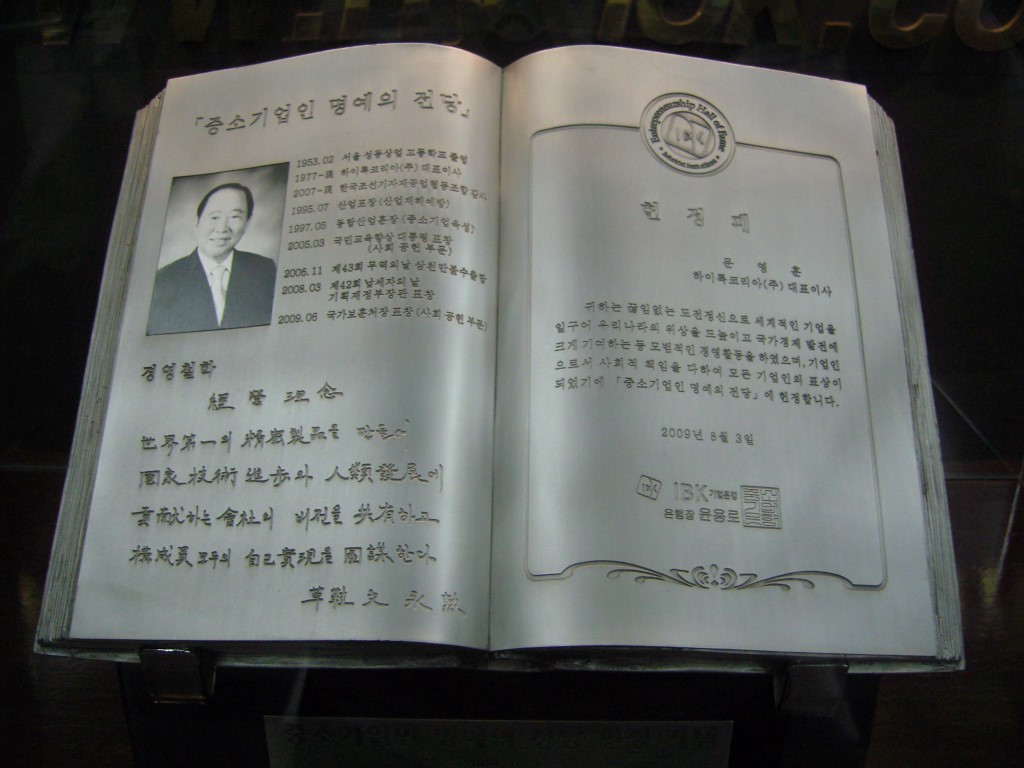 「중소기업인 명예의 전당」
1953.02 서울 성동상업 고등학교 졸업
1977-現 하이록코리아(주) 대표이사
2007-現 한국조선기자재공업협동조합 감사
1995.07 산업포장 (산업재해예방)
1997.05 동탑산업훈장 (중소기업육성)
2005.03 국민교육향상 대통령 표창
(사회 공헌 부문)
2006.11 제43회 무역의날 삼천만불수출탑
2008.03 제42회 납세자의 날
기획재정부장관 표창
2009.06 국가보훈처장 표창 (사회 공헌 부문)
경영철학
經營理念
世界第一의 精密製品을 만들어
國家技術進步와 人類發展에
貢獻하는 會社의 비전을 共有하고
構成員 모두의 自己實現을 圖謀한다
文永
Entrepreneurship Hall of Fame
IBK
헌정패
문영훈
하이록코리아(주) 대표이사
귀하는 끊임없는 도전정신으로 세계적인 기업을
일구어 우리나라의 위상을 드높이고 국가경제 발전에
크게 기여하는 등 모범적인 경영활동을 하였으며, 기업인
으로서 사회적 책임을 다하여 모든 기업인의 표상이
되었기에 「중소기업인 명예의 전당」에 헌정합니다.
2009년 8월 3일
IBK 기업은행
은행장 윤용로
중소기업인 명예의 전당 헌정 기념